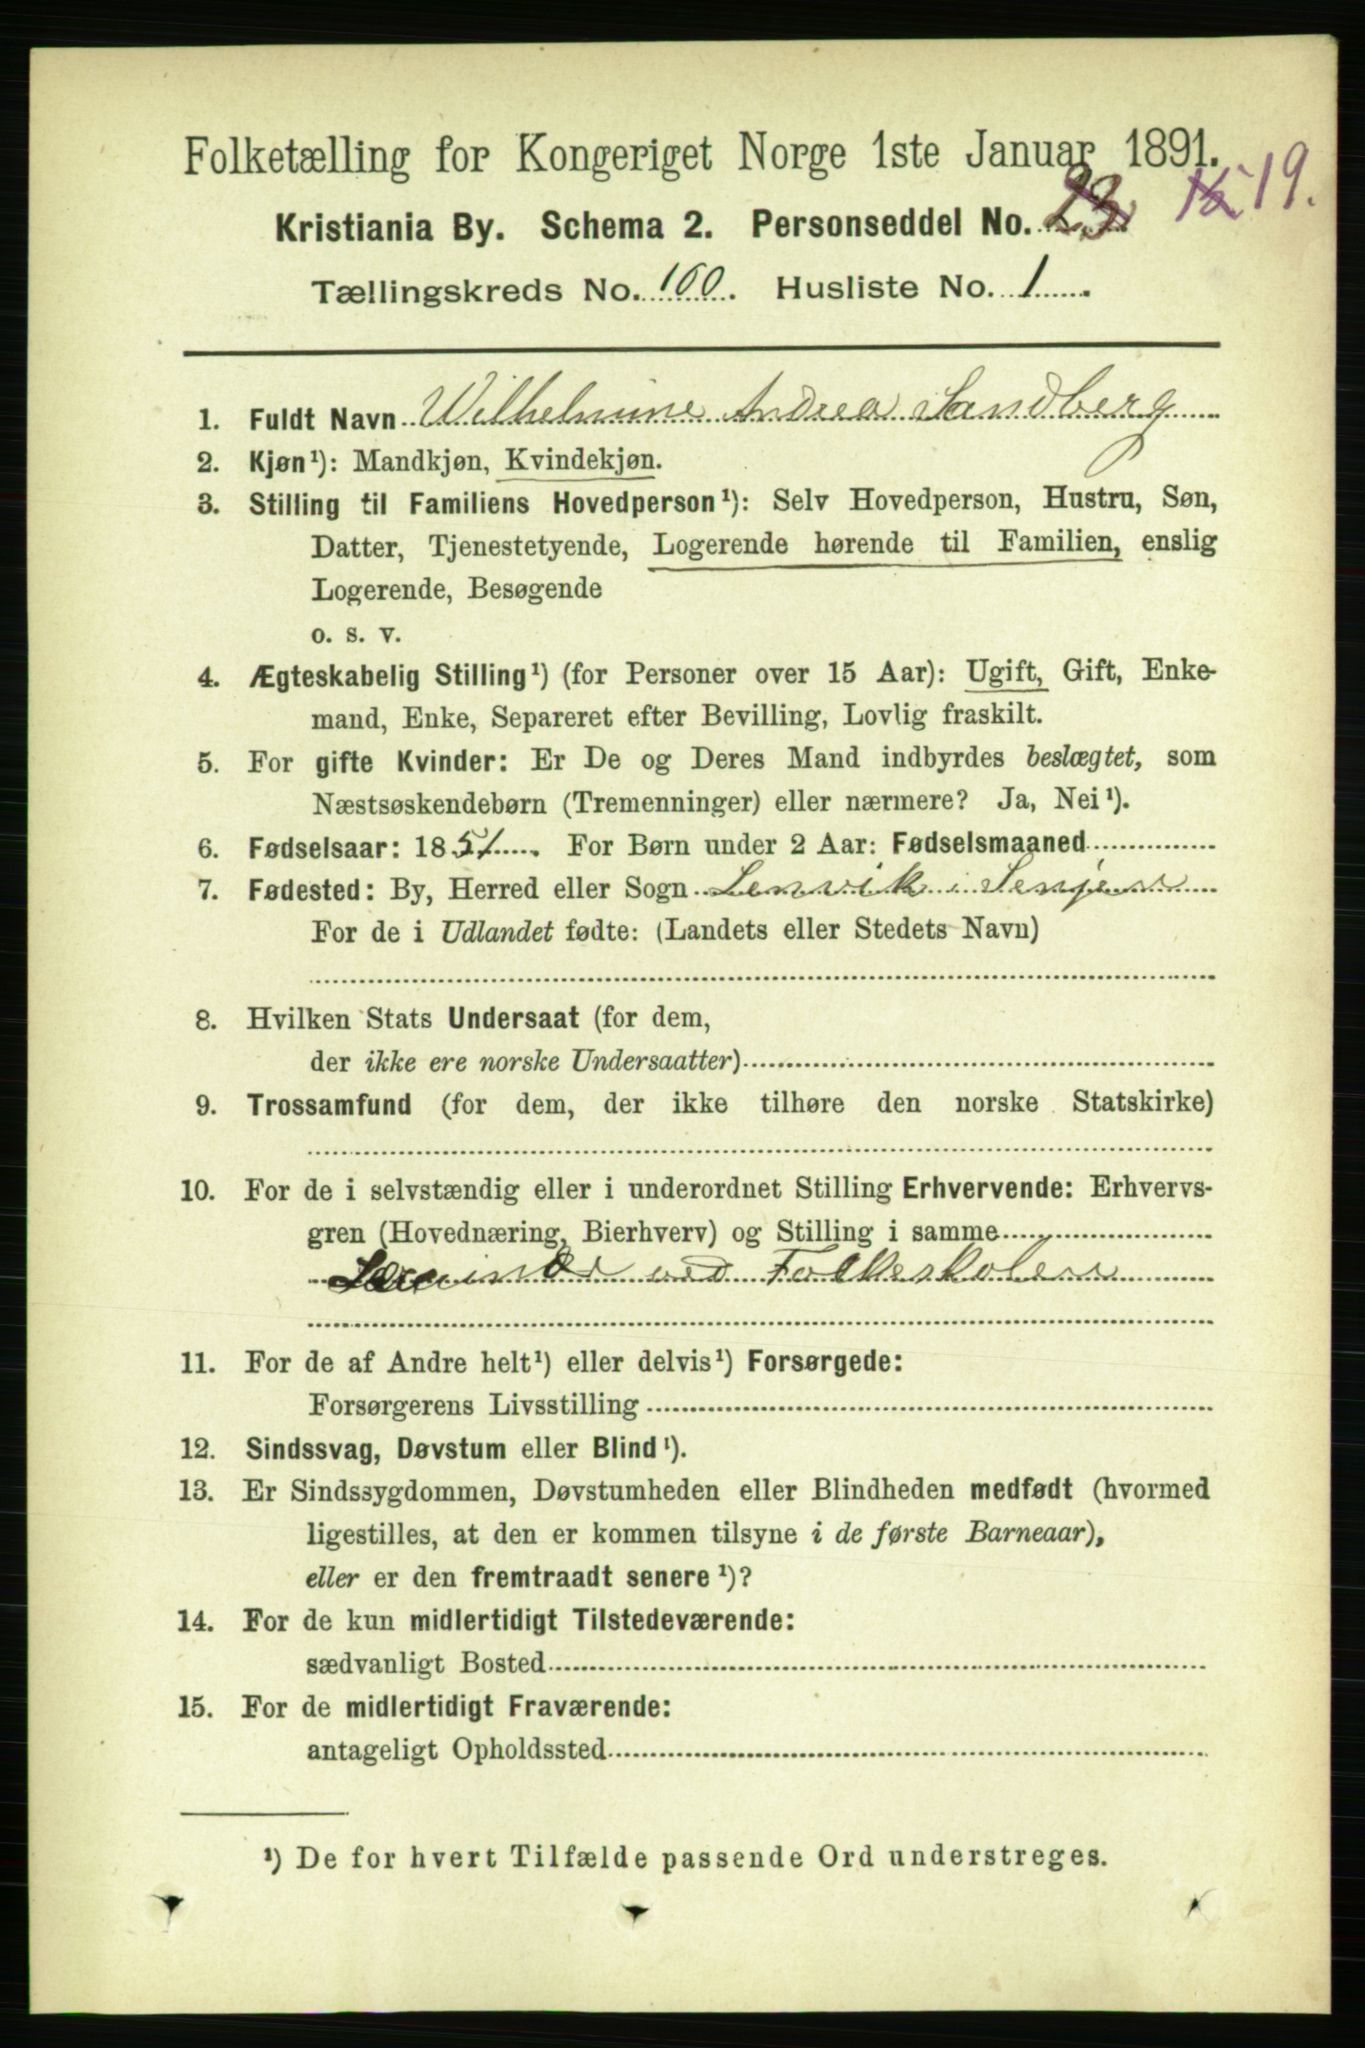 Folketælling for Kongeriget Norge 1ste Januar 1891.
Kristiania By. Schema 2. Personseddel No. 23 15 19.
Tællingskreds No. 160. Husliste No. 1
1. Fuldt Navn Wilhelmine Andrea Sandberg
2. Kjøn¹): Mandkjøn, Kvindekjøn.
3. Stilling til Familiens Hovedperson¹): Selv Hovedperson, Hustru, Søn,
Datter, Tjenestetyende, Logerende hørende til Familien, enslig
Logerende, Besøgende
o. s. v.
4. Ægteskabelig Stilling¹) (for Personer over 15 Aar): Ugift, Gift, Enke-
mand, Enke, Separeret efter Bevilling, Lovlig fraskilt.
5. For gifte Kvinder: Er De og Deres Mand indbyrdes beslægtet, som
Næstsøskendebørn (Tremenninger) eller nærmere? Ja, Nei¹).
6. Fødselsaar: 1851. For Børn under 2 Aar: Fødselsmaaned
7. Fødested: By, Herred eller Sogn Lenvik i Senjen
For de i Udlandet fødte: (Landets eller Stedets Navn)
8. Hvilken Stats Undersaat (for dem,
der ikke ere norske Undersaatter)
9. Trossamfund (for dem, der ikke tilhøre den norske Statskirke)
10. For de i selvstændig eller i underordnet Stilling Erhvervende: Erhvervs-
gren (Hovednæring, Bierhverv) og Stilling i samme
Lærerinde ved Folkeskolen
11. For de af Andre helt¹) eller delvis¹) Forsørgede:
Forsørgerens Livsstilling
12. Sindssvag, Døvstum eller Blind¹).
13. Er Sindssygdommen, Døvstumheden eller Blindheden medfødt (hvormed
ligestilles, at den er kommen tilsyne i de første Barneaar),
eller er den fremtraadt senere¹)?
14. For de kun midlertidigt Tilstedeværende:
sædvanligt Bosted
15. For de midlertidigt Fraværende:
antageligt Opholdssted
¹) De for hvert Tilfælde passende Ord understreges.